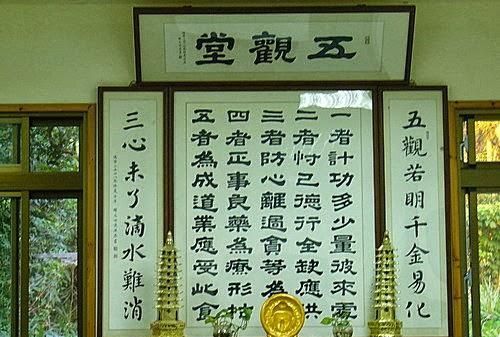 五觀堂
五觀若明千金易化
一者計功多少量彼來處
二者忖己德行全缺應供
三者防心離過貪等為
四者正事良藥為療形枯
五者為成道業應受此食
三心未了滴水難消